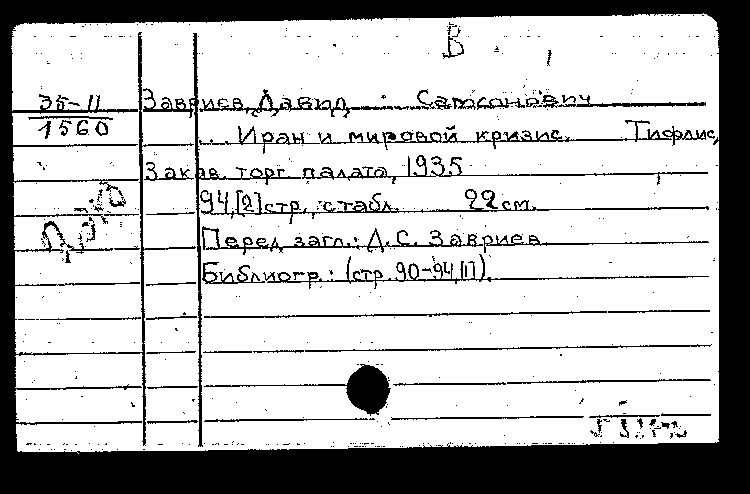 В
35-11
1560
Завриев, Давид Самсонович
... Иран и мировой кризис. Тифлис,
Закав. торг. палата, 1935
94,[2] стр., с табл. 22 см.
Перед загл.: Д. С. Завриев
Библиогр.: (стр. 90-94,[1]).